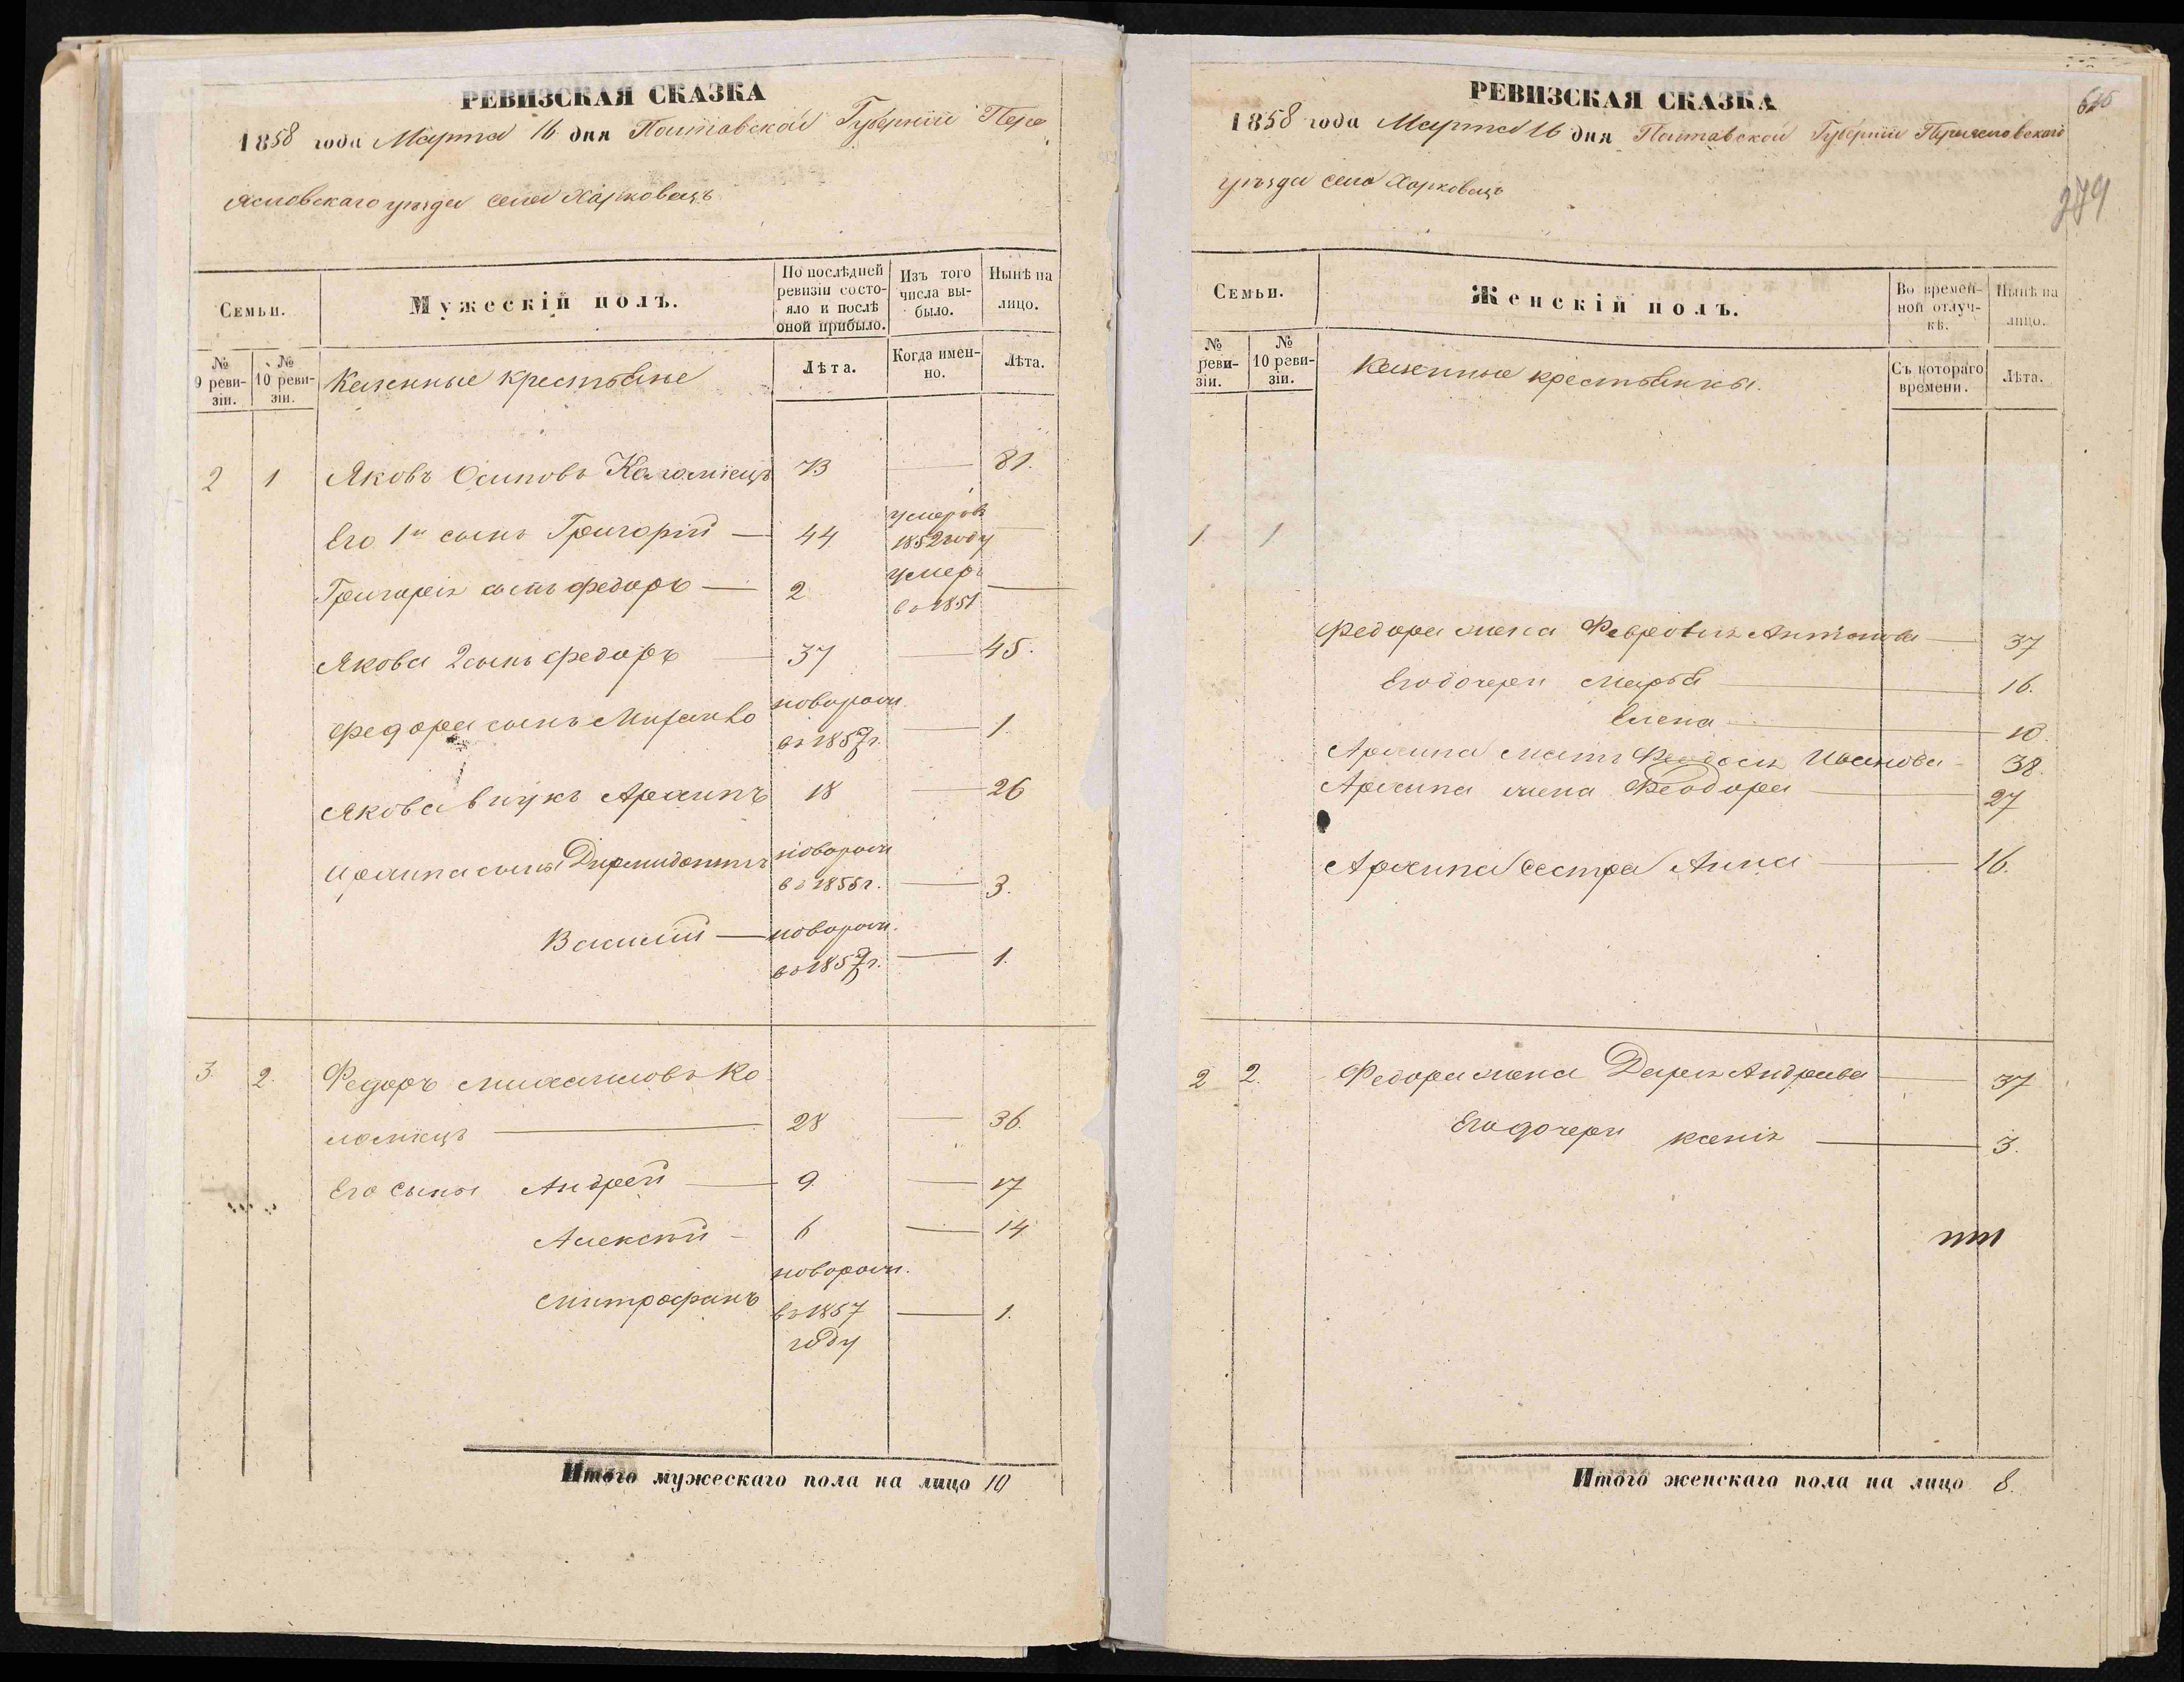 РЕВИЗСКАЯ СКАЗКА
1858 года Марта 16 дня Полтавской Губерніи Пере
яславскаго уѣзда села Харковецъ
Семьи.
Мужескій полъ.
По послѣдней ревизіи состояло и послѣ оной прибыло.
Изъ того числа выбыло.
Нынѣ на лицо.
№ 9 ревизіи.
№ 10 ревизіи.
Казенные крестьяне
Лѣта.
Когда именно.
Лѣта.
2 1 Яковъ Осиповъ Коломіецъ 73 — 81.
Его 1й сынъ Григорій — 44 умеръ въ 1852 году —
Григорія сынъ Федоръ — 2 умеръ въ 1851 —
Якова 2 сынъ Федоръ — 37 — 45.
Федора сынъ новорож. въ 1857 г. — 1.
Якова внукъ Архипъ 18 — 26
Архипа сыны новорож. — 3.
Василій — новорож. въ 1857 г. — 1.
3. 2. Федоръ Михайловъ Ко
ломіецъ — 28 — 36.
Его сыны Андрей — 9. — 17
Алексѣй — 6 — 14
Митрофанъ новорож. въ 1857 году — 1.
Итого мужескаго пола на лицо 10
РЕВИЗСКАЯ СКАЗКА
1858 года Марта 16 дня Полтавской Губерніи Переяславскаго
уѣзда села Харковецъ
279
Семьи.
Женскій полъ.
Во временной отлучкѣ.
Нынѣ на лицо.
№ ревизіи.
№ 10 ревизіи.
Казенные крестьянки.
Съ котораго времени.
Лѣта.
1. 1
Федора жена Февронія Антонова — 37
Его дочери Марья — 16.
Елена — 10.
Архипа мать Феодосія Иванова — 38.
Архипа жена Феодора — 27
Архипа сестра Анна — 16.
2 2. Федора жена Дарія Андреева — 37
Его дочери Ксенія — 3.
Итого женскаго пола на лицо 8.